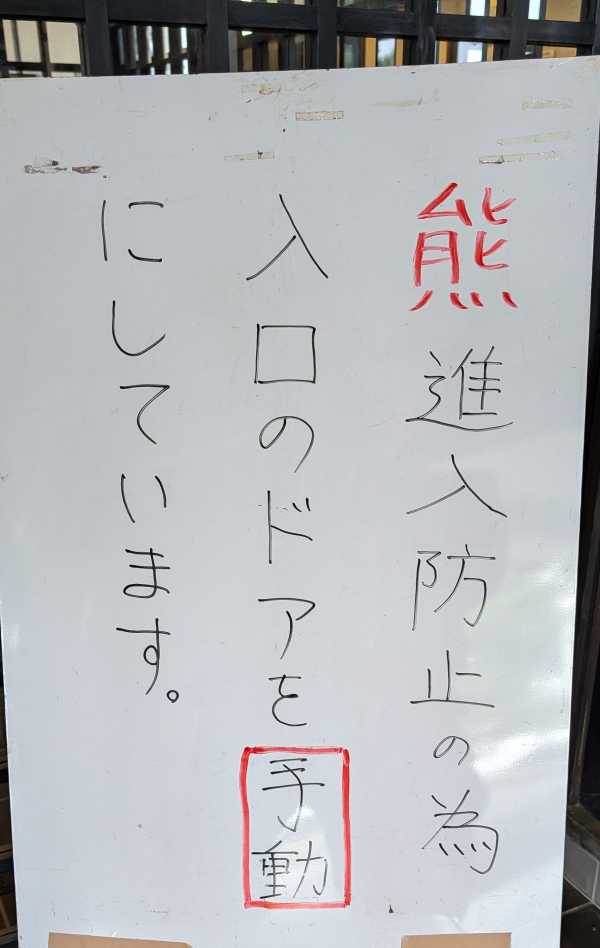 熊進入防止の為
入口のドアを手動
にしています。